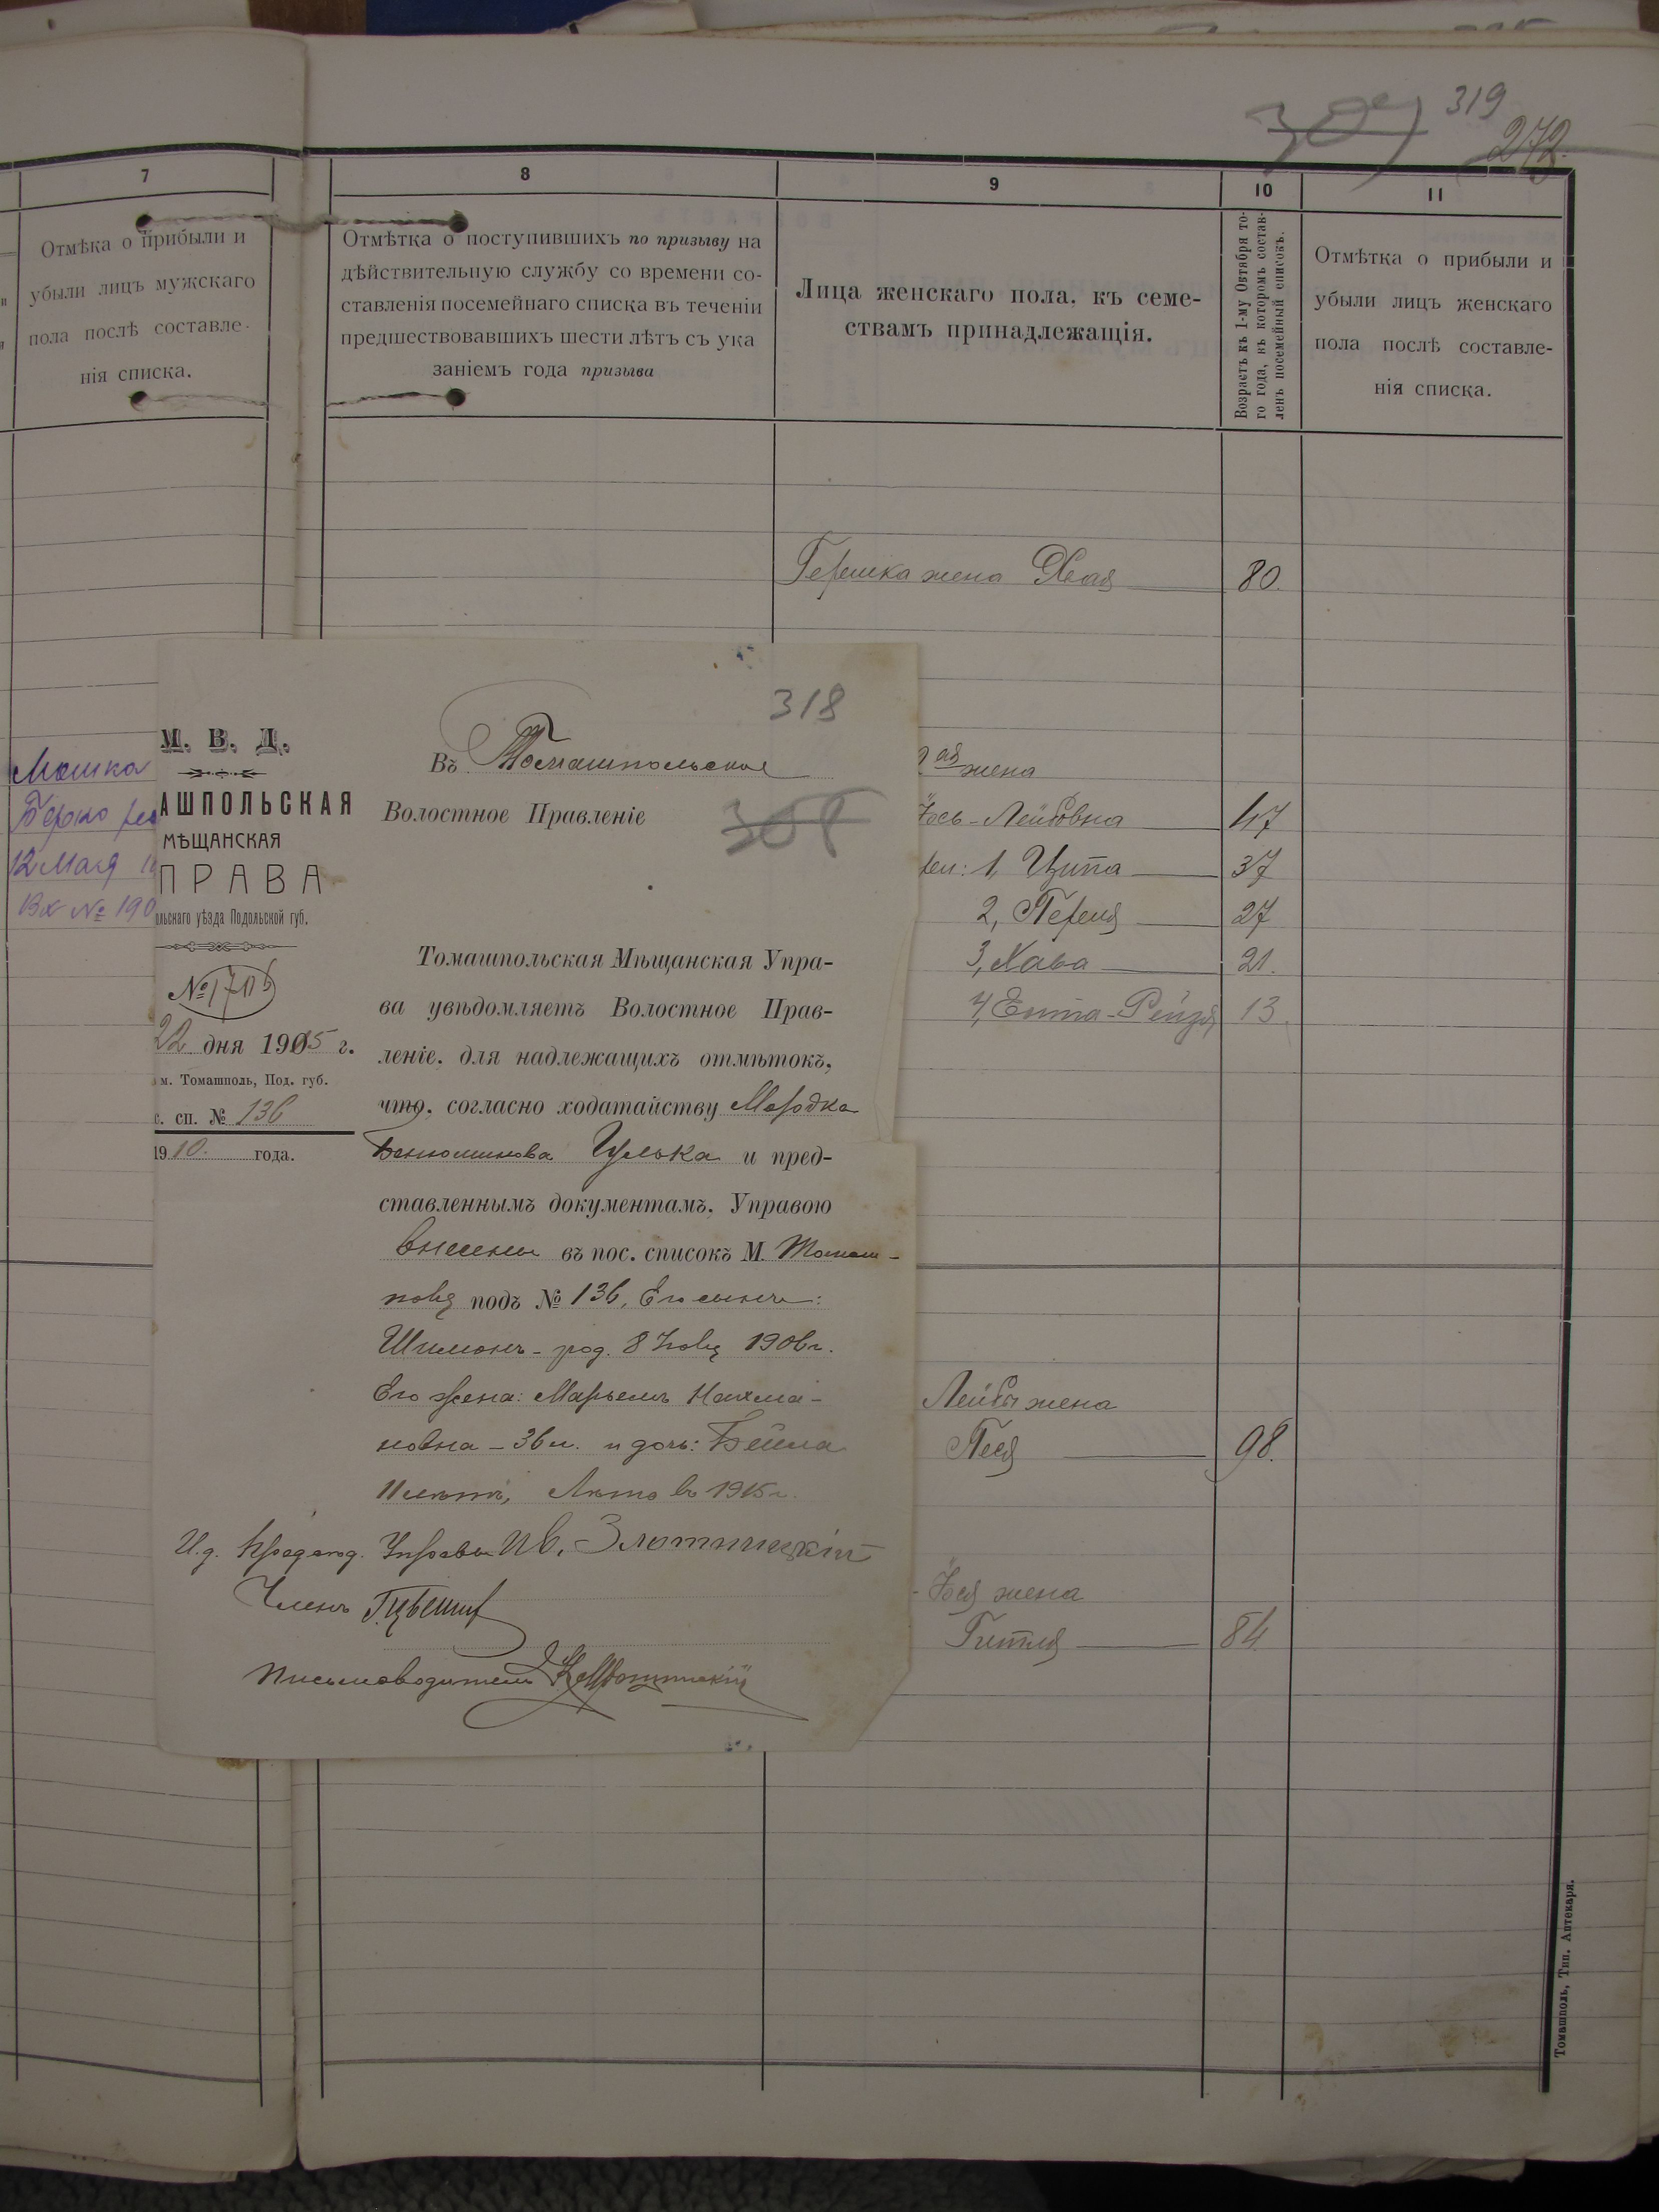 319
272.
7
8
9
10
11
Отмѣка о прибыли и
убыли лицъ мужскаго
пола послѣ составле-
нія списка.
Отмѣтка о поступившихъ по призыву на
дѣйствительную службу со времени со-
ставленія посемейнаго списка въ теченіи
предшествовавшихъ шести лѣтъ съ ука
заніемъ года призыва
Лица женскаго пола, къ семе-
ствамъ принадлежащія.
Возрастъ къ 1-му Октября то-
го года, въ которомъ состав-
ленъ посемейный списокъ.
Отмѣтка о прибыли и
убыли лицъ женскаго
пола послѣ составле-
нія списка.
Гершка жена Хая 80.
Мошка
Берко
12 Мая
Вх № 190
жена
Лейбовна 47
1, Ципа 37
2, Переля 27
3, Хава 21.
4, Ента-Рейзя 13
Лейбы жена
Песя 98.
жена
Гитля 84
318
М. В. Д.
АШПОЛЬСКАЯ
МѢЩАНСКАЯ
ПРАВА
ольскаго уѣзда Подольской губ.
22 дня 1915 г.
м. Томашполь, Под. губ.
с. сп. № 136
1910. года.
Въ Томашпольское
Волостное Правленіе
Томашпольская Мѣщанская Упра-
ва увѣдомляетъ Волостное Прав-
леніе. для надлежащихъ отмѣтокъ,
что, согласно ходатайству Мордка
Бенюминова Гулька и пред-
ставленнымъ документамъ, Управою
внесены въ пос. списокъ М. Томаш-
поля подъ № 136, Его сынъ:
Шимонъ - род. 8 1906 г.
Его жена: Марьемъ Нахма-
новна - 36 л. и дочь: Бейла
11 лѣтъ, Лѣта въ 1915 г.
И.д. Предсѣд. Управы Ив. Злотницкій
Членъ
Письмоводитель
Томашполь, Тип. Аптекаря.